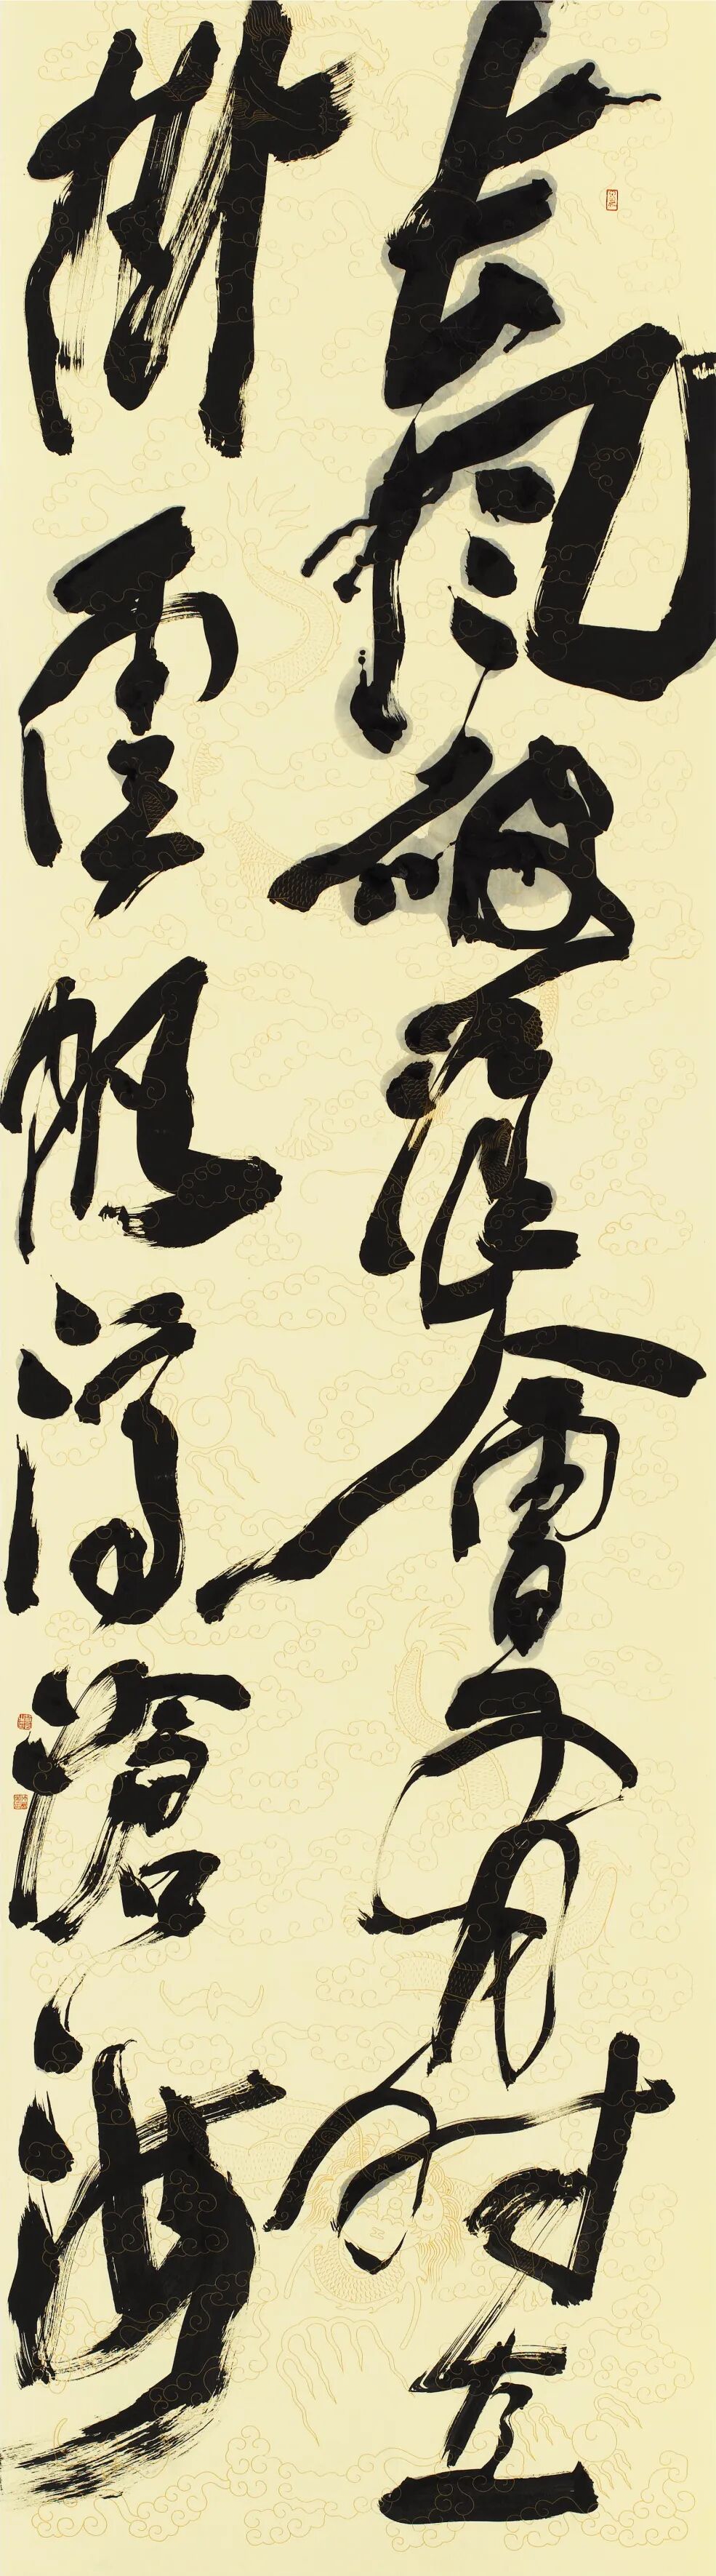 長風破浪會有時直
掛雲帆濟滄海